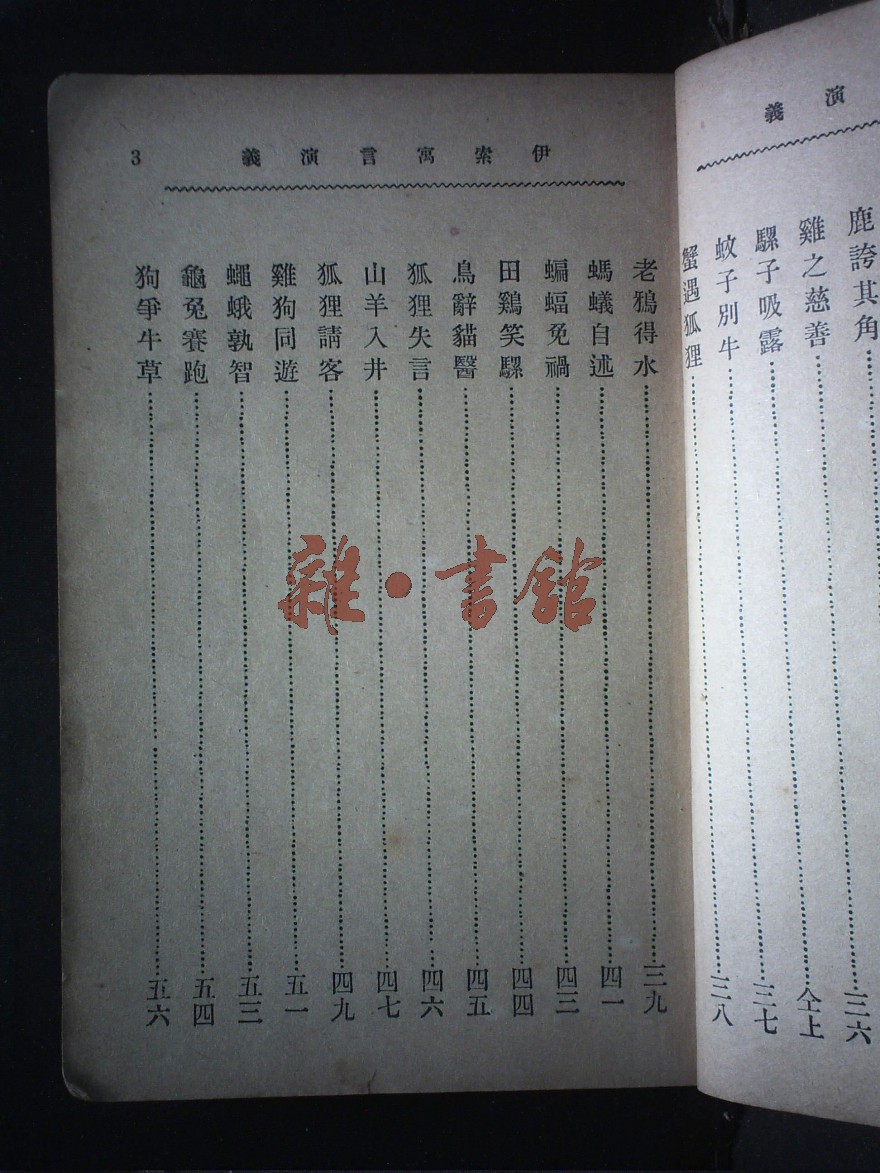 演義
鹿誇其角 三六
雞之慈善 仝上
騾子吸露 三七
蚊子別牛 三八
蟹遇狐狸
伊索寓言演義 3
老鴉得水 三九
螞蟻自述 四一
蝙蝠免禍 四三
田鷄笑騾 四四
鳥辭貓醫 四五
狐狸失言 四六
山羊入井 四七
狐狸請客 四九
雞狗同遊 五一
蠅蛾孰智 五三
龜兔賽跑 五四
狗爭牛草 五六
雜·書館